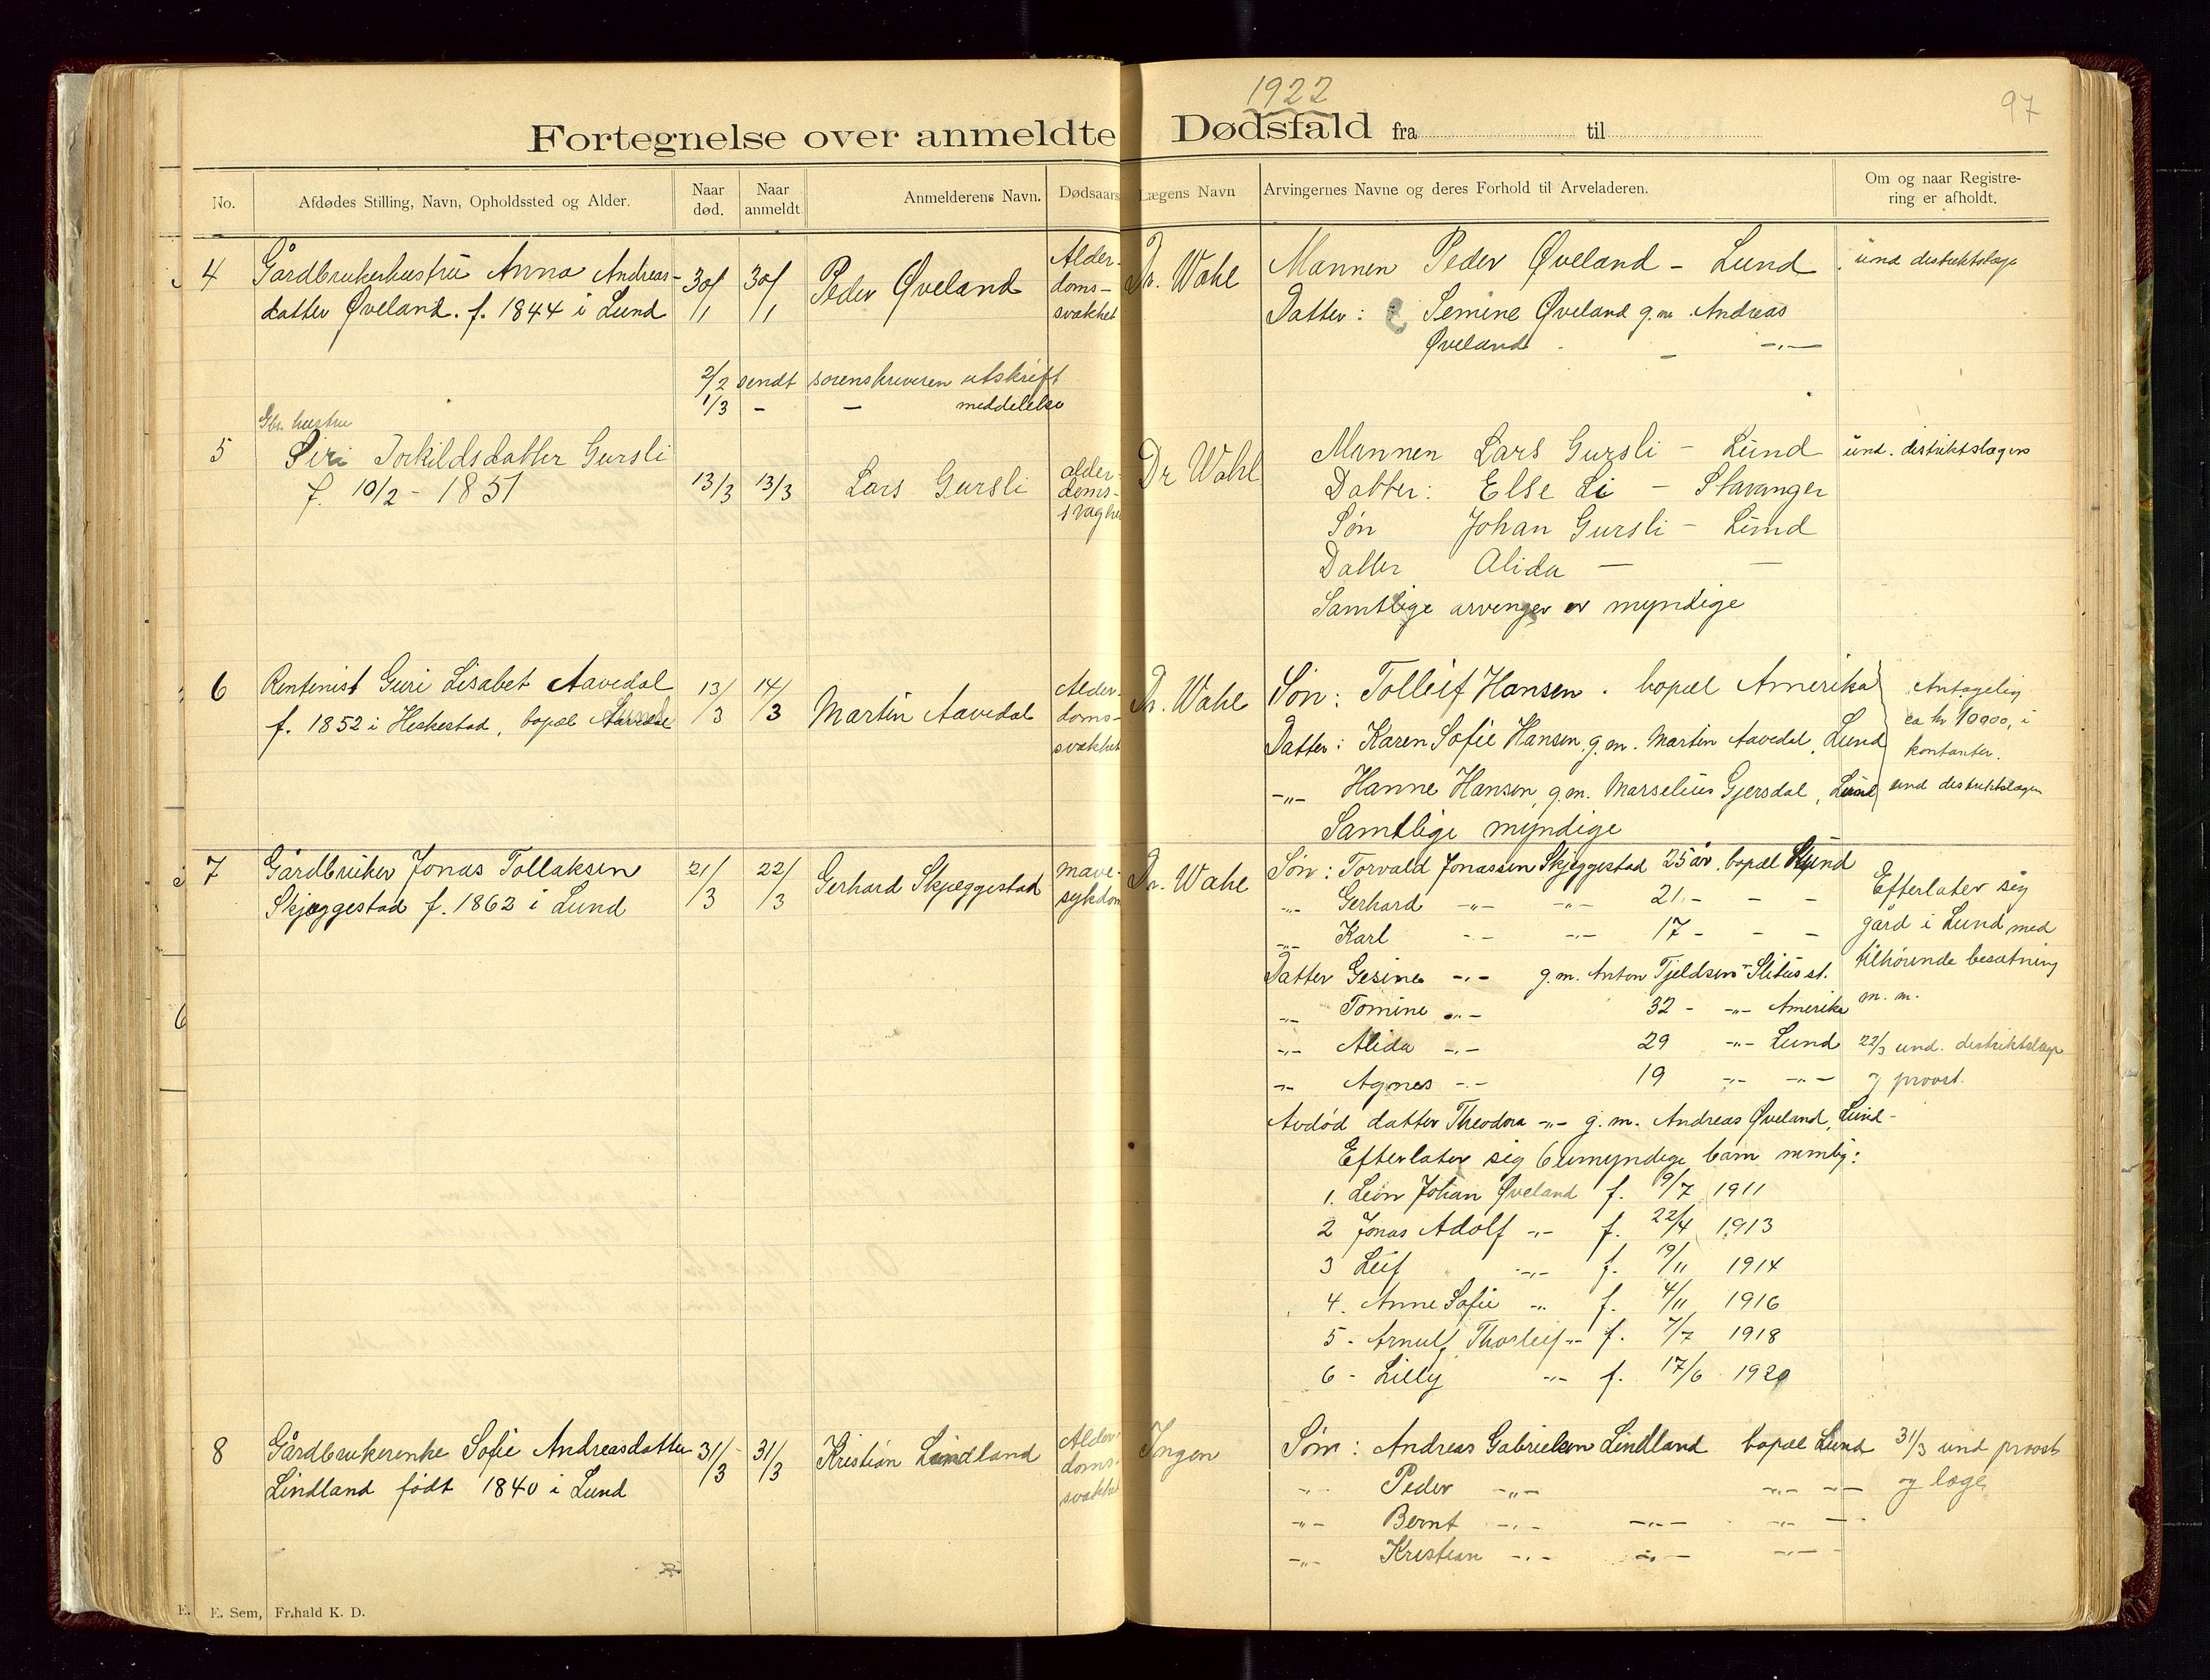 1922
97
Fortegnelse over anmeldte Dødsfald fra til
No. Afdødes Stilling, Navn, Opholdssted og Alder. Naar død. Naar anmeldt Anmelderens Navn. Dødsaars Lægens Navn Arvingernes Navne og deres Forhold til Arveladeren. Om og naar Registrering er afholdt.
4 Gårdbrukerhustru Anna Andreas-
datter Øveland. f. 1844 i Lund
30/1 30/1 Peder Øveland
Alder-
doms-
svakhet
Dr. Wahl
Mannen Peder Øveland - Lund
Datter: Semine Øveland g.m. Andreas
Øveland - -"-
und distriktslæge
2/2 sendt sorenskriveren utskrift
1/3 - - meddelelse
5 Gbr. hustru
Siri Torkildsdatter Gursli
f. 10/2 - 1851
13/3 13/3 Lars Gursli
alder-
doms-
svaghe
Dr Wahl
Mannen Lars Gursli - Lund
Datter: Else Li - Stavanger
Søn Johan Gursli - Lund
Datter Alida - -
Samtlige arvenger er myndige
und. distriktslægen
6 Rentenist Guri Lisabet Aavedal
f. 1852 i Heskestad, bopæl Lund
13/3 14/3 Martin Aavedal
Alder-
doms-
svakhet
Dr. Wahl
Søn: Tolleif Hansen. bopæl Amerika
Datter: Karen Sofie Hansen, g.m. Martin Aavedal, Lund
-"- Hanne Hansen, g.m. Marselius Gjersdal, Lund
Samtlige myndige
Antagelig
ca kr 10000, i
kontanter.
und distriktslægen
7 Gårdbruker Jonas Tollaksen
Skjæggestad f. 1862 i Lund
21/3 22/3 Gerhard Skjæggestad
mave-
sykdom
Dr. Wahl
Søn: Torvald Jonassen Skjeggestad 25 år. bopæl Lund
-"- Gerhard -"- -"- 21 - - -
-"- Karl -"- -"- 17 - - -
Datter Gesine -"- g.m. Anton Tjeldsen
-"- Tomine -"- 32 - -"- Amerika
-"- Alida -"- 29 -"- Lund
-"- Agnes -"- 19 -"- -"-
Avdød datter Theodora -"- g.m. Andreas Øveland, Lund -
Efterlater sig 6 umyndige barn nemlig:
1. Leon Johan Øveland f. 9/7 1911
2 Jonas Adolf -"- f. 22/4 1913
3 Leif -"- f. 19/11 1914
4. Anne Sofie -"- f. 4/11 1916
5 - Arnulf Thorleif -"- f. 7/7 1918
6 - Lilly -"- f. 17/6 1920
Efterlater sig
gård i Lund med
tilhørende besætning
m. m.
22/3 und. distriktslæge
og provst.
8 Gårdbrukerenke Sofie Andreasdatter
Lindland født 1840 i Lund
31/3 31/3 Kristian Lindland
Alder-
doms-
svakhet
Ingen
Søn: Andreas Gabrielsen Lindland bopæl Lund
-"- Peder -"- -"- -"-
-"- Bernt -"- -"- -"- -
-"- Kristian -"- -"- -"-
31/3 und provst
og læge
E. E. Sem, Fr.hald K. D.